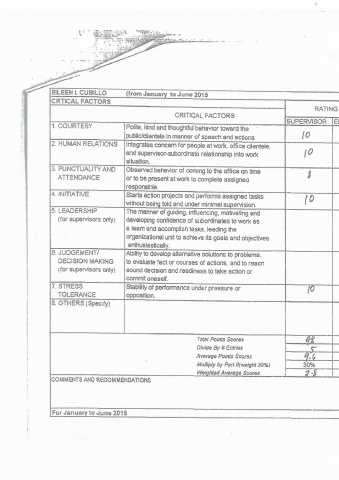 EILEEN I. CUBILLO (from January to June 2015
CRTICAL FACTORS
RATING
CRITICAL FACTORS
SUPERVISOR
1. COURTESY Polite, kind and thoughtful behavior toward the 10
public/clientele in manner of speech and actions
2. HUMAN RELATIONS Integrates concern for people at work, office clientele 10
and supervisor-subordinate relationship into work
situation.
3. PUNCTUALITY AND Observed behavior of coming to the office on time 8
ATTENDANCE or to be present at work to complete assigned
responsible.
4. INITIATIVE Starts action projects and performs assigned tasks 10
without being told and under minimal supervision.
5. LEADERSHIP The manner of guiding, influencing, motivating and
(for supervisors only) developing confidence of subordinates to work as
a team and accomplish tasks, leading the
organizational unit to achieve its goals and objectives
enthusiastically.
6. JUDGEMENT/ Ability to develop alternative solutions to problems,
DECISION MAKING to evaluate fact or courses of actions, and to reach
(for supervisors only) sound decision and readiness to take action or
commit oneself.
7. STRESS Stability of performance under pressure or 10
TOLERANCE opposition.
8. OTHERS (Specify)
Total Points Scores 48
Divide By # Entries 5
Average Points Scores 9.6
Multiply by Part II(weight 30%) 30%
Weighted Average Scores 2.8
COMMENTS AND RECOMMENDATIONS
For January to June 2015